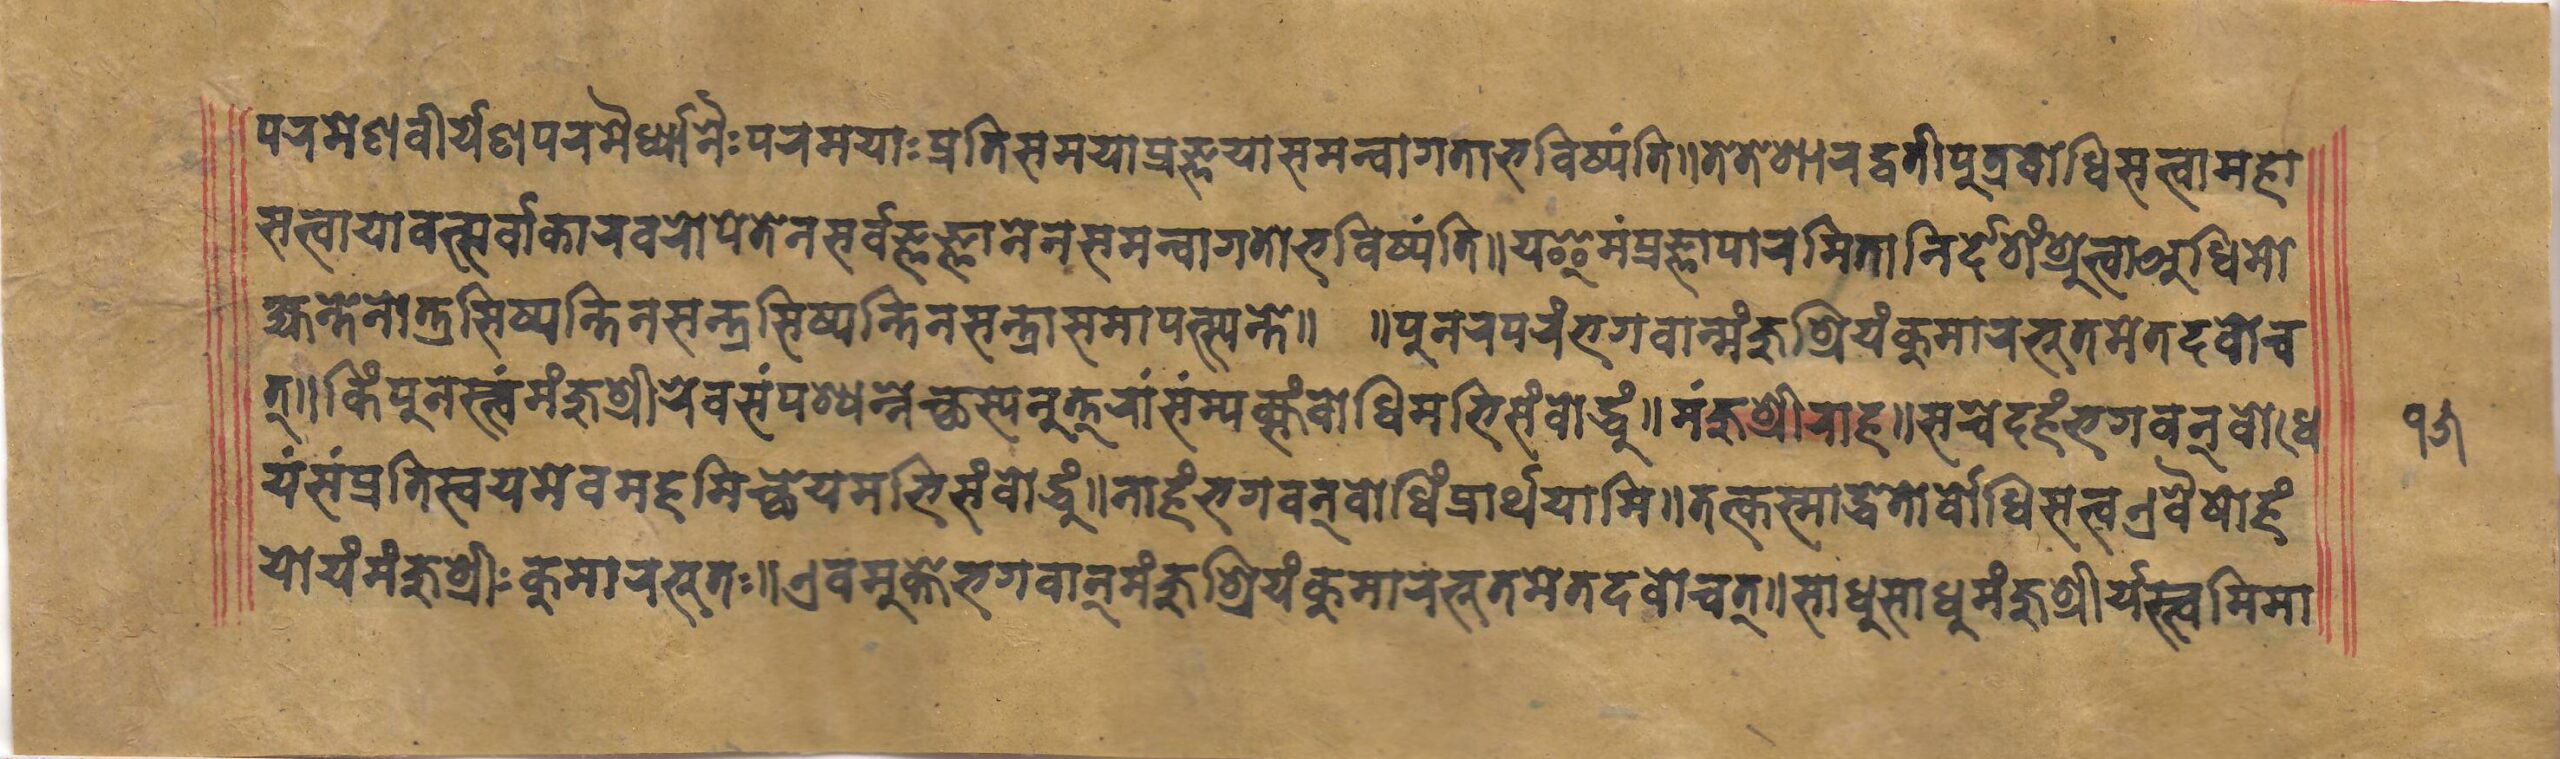 परमेण वीर्येण परमैर्ध्यानैः परमयाः प्रतिसमया प्रज्ञया समन्वागता भविष्यंति॥ ते ते शारद्वतीपुत्र बोधिसत्त्वा महा
सत्त्वा यावत्सर्वाकारवरोपेतेन सर्वज्ञज्ञानेन समन्वागतो भविष्यंति॥ य इमं प्रज्ञापारमितानिर्देशं श्रुत्वा अधिमो
क्ष्यन्ते नोत्त्रसिष्यन्ति न सन्त्रसिष्यन्ति न सन्त्रासमापत्स्यन्ते॥ ॥ पुनरपरं भगवान्मंजुश्रियं कुमारभूतमेतदवोच
त्॥ किं पुनस्त्वं मंजुश्रीरेव संपश्यन्नेच्छस्यनुत्तरां संम्यक्संबोधिमभिसंबोद्धुं॥ मंजुश्रीराह॥ सचेदहं भगवन् बोधे
यं संप्रतिस्वयमेवमहमिच्छेयमभिसंबोद्धुं॥ नाहं भगवन् बोधिं प्रार्थयामि॥ तत्कस्माद्धेतोर्बोधिसत्त्व एवैषोहं
योयं मंजुश्रीः कुमारभूतः॥ एवमुक्ते भगवान् मंजुश्रियं कुमारभूतमेतदवोचत्॥ साधु साधु मंजुश्रीर्यस्त्वमिमा